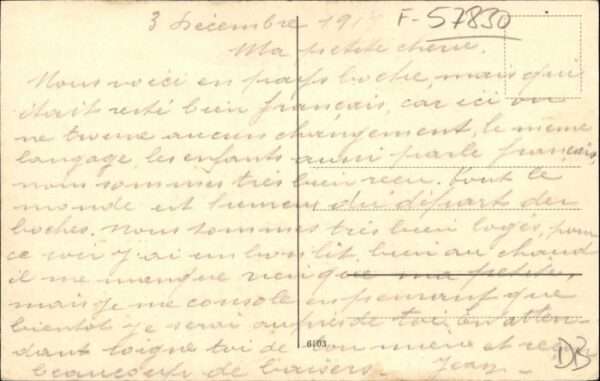 3 Décembre 191
F-57830
Ma petite cherie.
Nous voici en pays boche, mais qui
était resté bien français, car ici on
ne trouve aucun changement, le même
langage, les enfants aussi parle français,
nous sommes très bien reçu. Tout le
monde est heureux du départ des
boches. Nous sommes très bien logés, pour
ce soir j'ai un bon lit, bien au chaud
il me manque rien que ma petite,
mais je me console en pensant que
bientôt je serai auprès de toi. En atten-
dant soigne toi de ton mieux et reçois
beaucoup de baisers. Jean
6103
DB